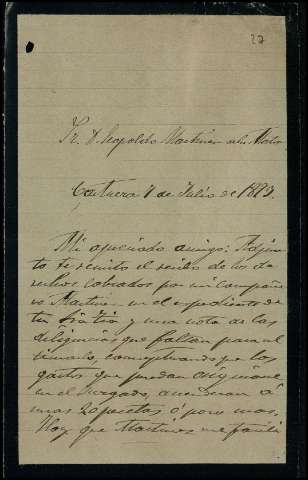 27
Sr. D. Leopoldo Martinez de la Mata
7 de Julio de 1893.
Mi apreciado amigo: Adjun-
to te remito el recibo de los de-
rechos cobrados por mi compañe-
ro Martinez en el expediente de
tu tia Fia y una nota de las
diligencias que faltan para el
calculando que los
gastos que puedan originarse
en el Juzgado, ascenderan á
unas 20 pesetas ó poco mas.
Hoy que Martinez me facili